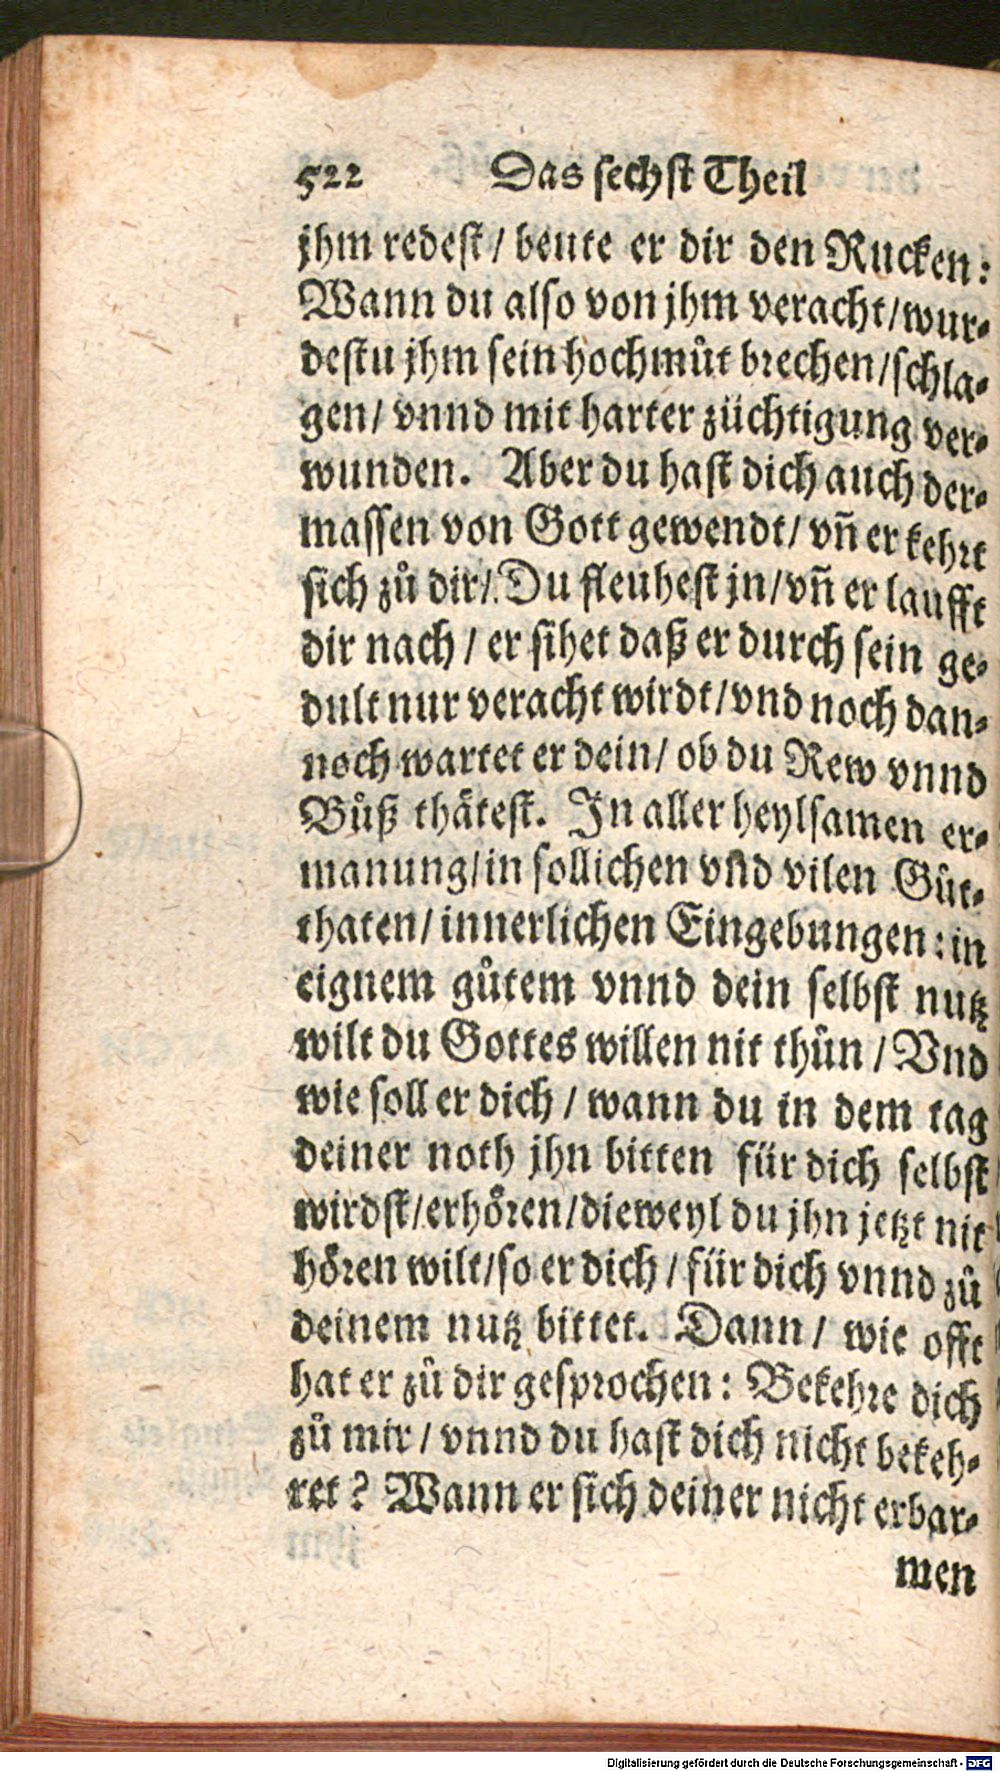 522 Das sechst Theil
jhm redest / beute er dir den Rucken:
Wann du also von jhm veracht / wur-
destu jhm sein hochmůt brechen / schla-
gen / vnnd mit harter züchtigung ver-
wunden. Aber du hast dich auch der-
massen von Gott gewendt / vñ er kehrt
sich zů dir / Du fleuhest jn / vñ er laufft
dir nach / er sihet daß er durch sein ge-
dult nur veracht wirdt / vnd noch dan-
noch wartet er dein / ob du Rew vnnd
Bůß thätest. In aller heylsamen er-
manung / in sollichen vnd vilen Gůt-
thaten / innerlichen Eingebungen: in
eignem gůtem vnnd dein selbst nutz
wilt du Gottes willen nit thůn / Vnd
wie soll er dich / wann du in dem tag
deiner noth jhn bitten für dich selbst
wirdst / erhören / dieweyl du jhn jetzt nit
hören wilt / so er dich / für dich vnnd zů
deinem nutz bittet. Dann / wie offt
hat er zů dir gesprochen: Bekehre dich
zů mir / vnnd du hast dich nicht bekeh-
ret? Wann er sich deiner nicht erbar-
men
Digitalisierung gefördert durch die Deutsche Forschungsgemeinschaft - DFG